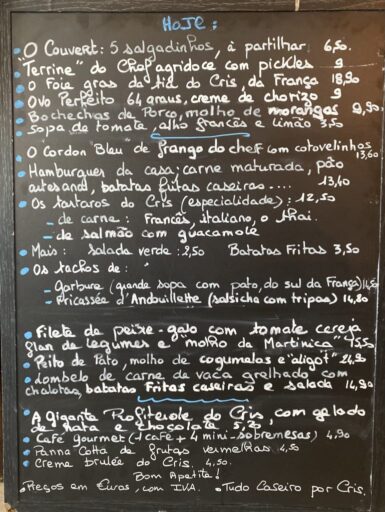 HOJE:
• "O Couvert: 5 salgadinhos, à partilhar 6,50.
• "Terrine" do Chef agridoce com pickles 9
• O Foie gras da tia do Cris da França 18,90
• Ovo Perfeito 64 graus, creme de chorizo 9
• Bochechas de Porco, molho de morangos 9,90
• Sopa de tomate, alho francês e limão 3,50
• O Cordon Bleu" de frango do chef com cotovelinhos 13,60
• Hamburguer da casa; carne maturada, pão
artesanal, batatas fritas caseiras .... 13,40
• Os tartaros do Cris (especialidade): 12,50
- de carne: Francês, italiano, o thai.
- de salmão com guacamolé
• Mais: salada verde: 2,50 Batatas Fritas 3,50
• Os tachos de:
- Garbure (grande sopa com pato, do sul da França) 14,50
- Fricassée d'Andouillette (salsicha com tripas) 14,80
• Filete de peixe-galo com tomate cereja
flan de legumes e "molho da Martinica" 15,50
• Peito de Pato, molho de cogumelos e "aligot" 21,90
• Lombelo de carne de vaca grelhado com
chalotas, batatas fritas caseiras e salada 14,90
• A Gigante Profiterole do Cris, com gelado
de nata e chocolate 5,20
• Café gourmet (1 café + 4 mini-sobremesas) 4,90
• Panna Cotta de frutas vermelhas 4,50
• Creme brulée do Cris. 4,50.
Bom Apetite!
• Preços em Euros, com IVA. • Tudo Caseiro por Cris.